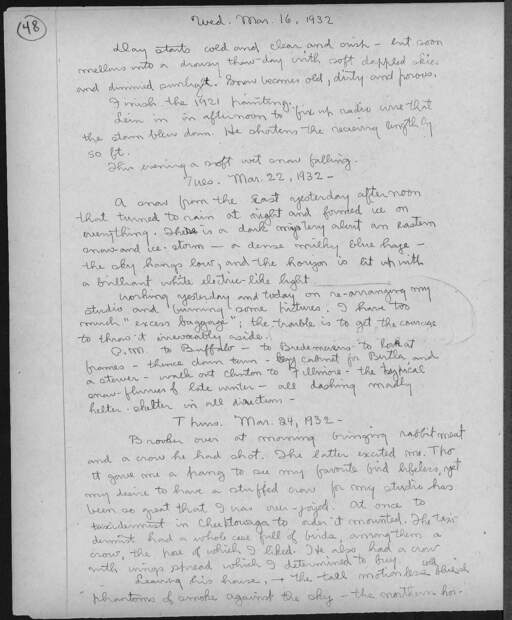 48
Wed. Mar. 16, 1932
Day starts cold and clear and crisp - but soon
mellows into a drowsy thaw-day with soft dappled skies
and dimmed sunlight. Snow becomes old, dirty and porous.
I finish the 1921 painting.
in in afternoon to fix up radio wire that
the storm blew down. He shortens the receiving length by
50 ft.
This evening a soft wet snow falling.
Tues. Mar. 22, 1932 -
A snow from the East yesterday afternoon
that turned to rain at night and formed ice on
everything. There is a dark mystery about an eastern
snow-and ice-storm - a dense milky blue haze -
the sky hangs low, and the horizon is lit up with
a brilliant white electric-like light
Working yesterday and today on re-arranging my
studio and burning some pictures. I have too
much "excess baggage"; the trouble is to get the courage
to throw it inexorably aside.
P.M. to Buffalo - to Bredemeiers to look at
frames - thence down town - buy cabinet for Bertha and
a steamer - walk out Clinton to Fillmore - the typical
snow-flurries of late winter - all dashing madly
helter-skelter in all directions -
Thurs. Mar. 24, 1932 -
over at morning bringing rabbit meat
and a crow he had shot. The latter excited me. Tho
it gave me a pang to see my favorite bird lifeless, yet
my desire to have a stuffed crow for my studio has
been so great that I was over-joyed. At once to
taxidermist in Cheektowaga to order it mounted. The taxi-
dermist had a whole case full of birds, among them a
crow, the pose of which I liked. He also had a crow
with wings spread which I determined to buy.
Leaving his house, → the tall motionless
phantoms of smoke against the sky - the northern hor-